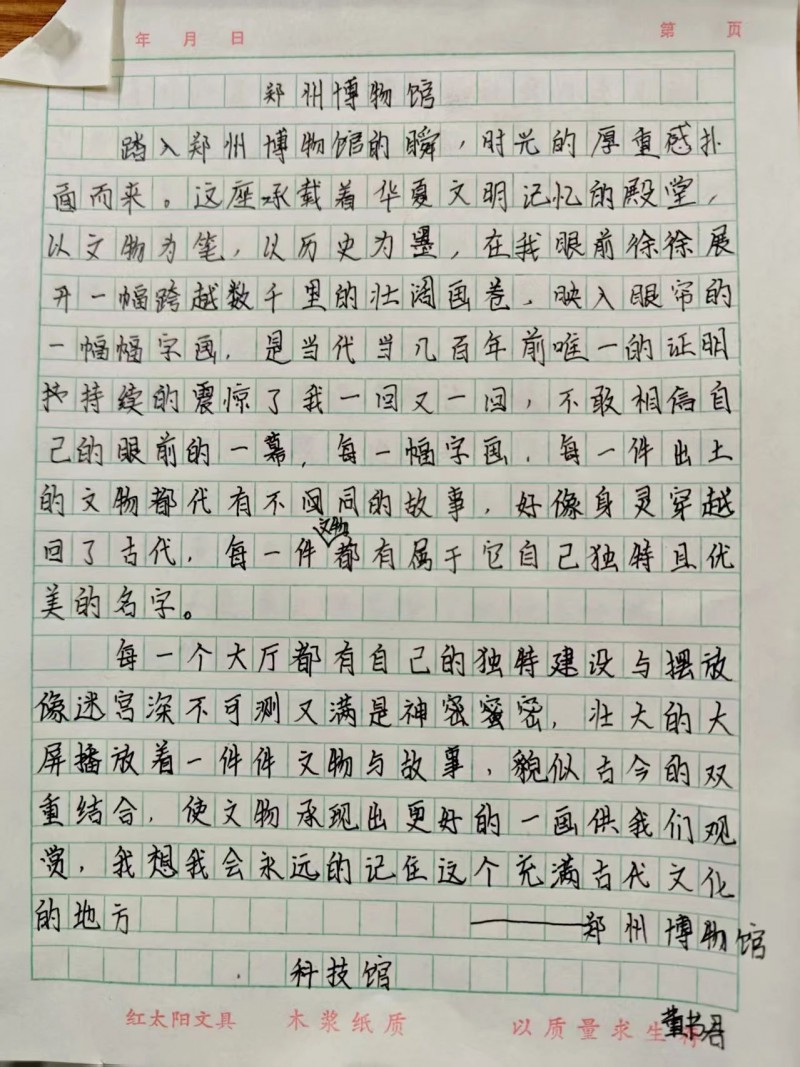 年 月 日 第 页
郑州博物馆
踏入郑州博物馆的瞬,时光的厚重感扑
面而来。这座承载着华夏文明记忆的殿堂,
以文物为笔,以历史为墨,在我眼前徐徐展
开一幅跨越数千里的壮阔画卷,映入眼帘的
一幅幅字画,是当代当几百年前唯一的证明
持续的震惊了我一回又一回,不敢相信自
己的眼前的一幕,每一幅字画,每一件出土
的文物都代有不同的故事,好像身灵穿越
回了古代,每一件文物都有属于它自己独特且优
美的名字。
每一个大厅都有自己的独特建设与摆放
像迷宫深不可测又满是神密蜜密,壮大的大
屏播放着一件件文物与故事,貌似古今的双
重结合,使文物承现出更好的一画供我们观
赏,我想我会永远的记住这个充满古代文化
的地方 ——郑州博物馆
科技馆
红太阳文具 木浆纸质 以质量求生存
董书君